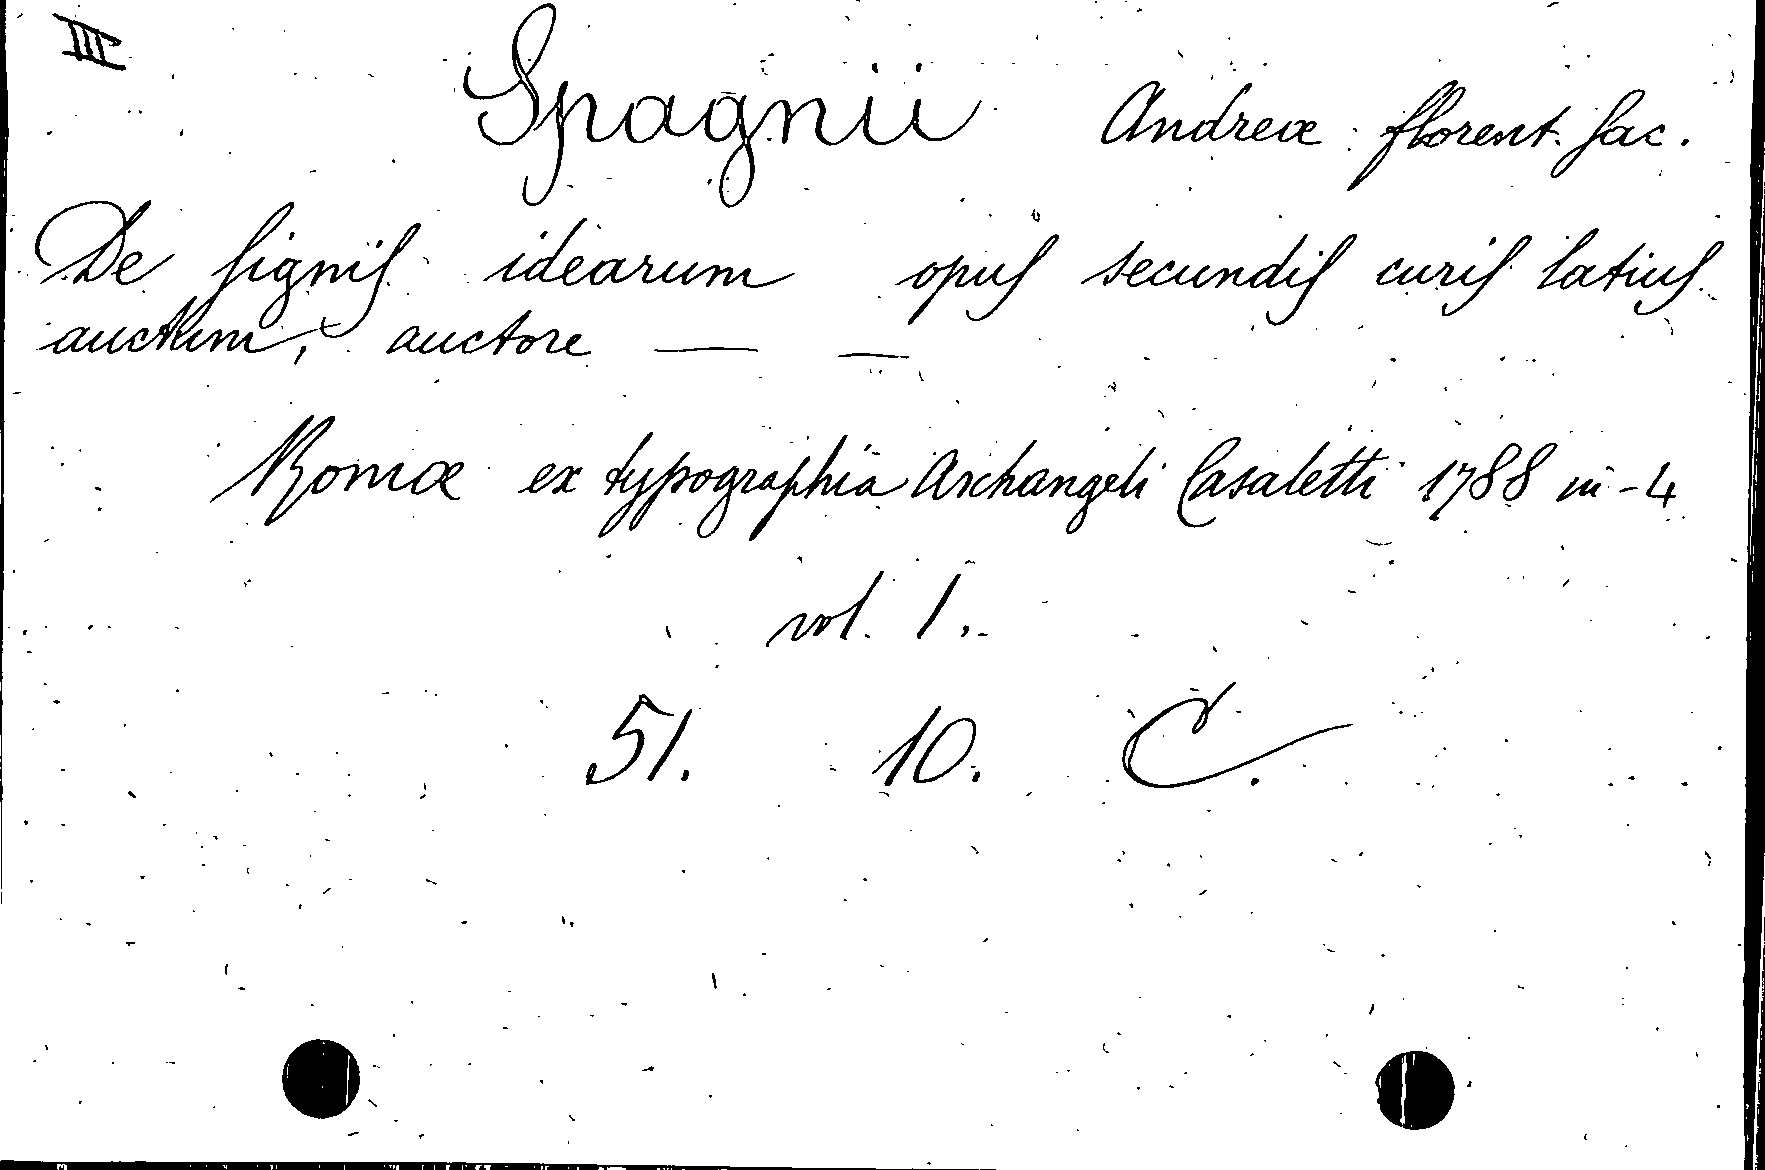 III
Spagnii Andreæ florent. sac.
De signis idearum opus secundis curis latius
auctum, auctore — —
Romæ ex typographia Archangeli Casaletti 1788 in-4
vol. 1.
51. 10. C.